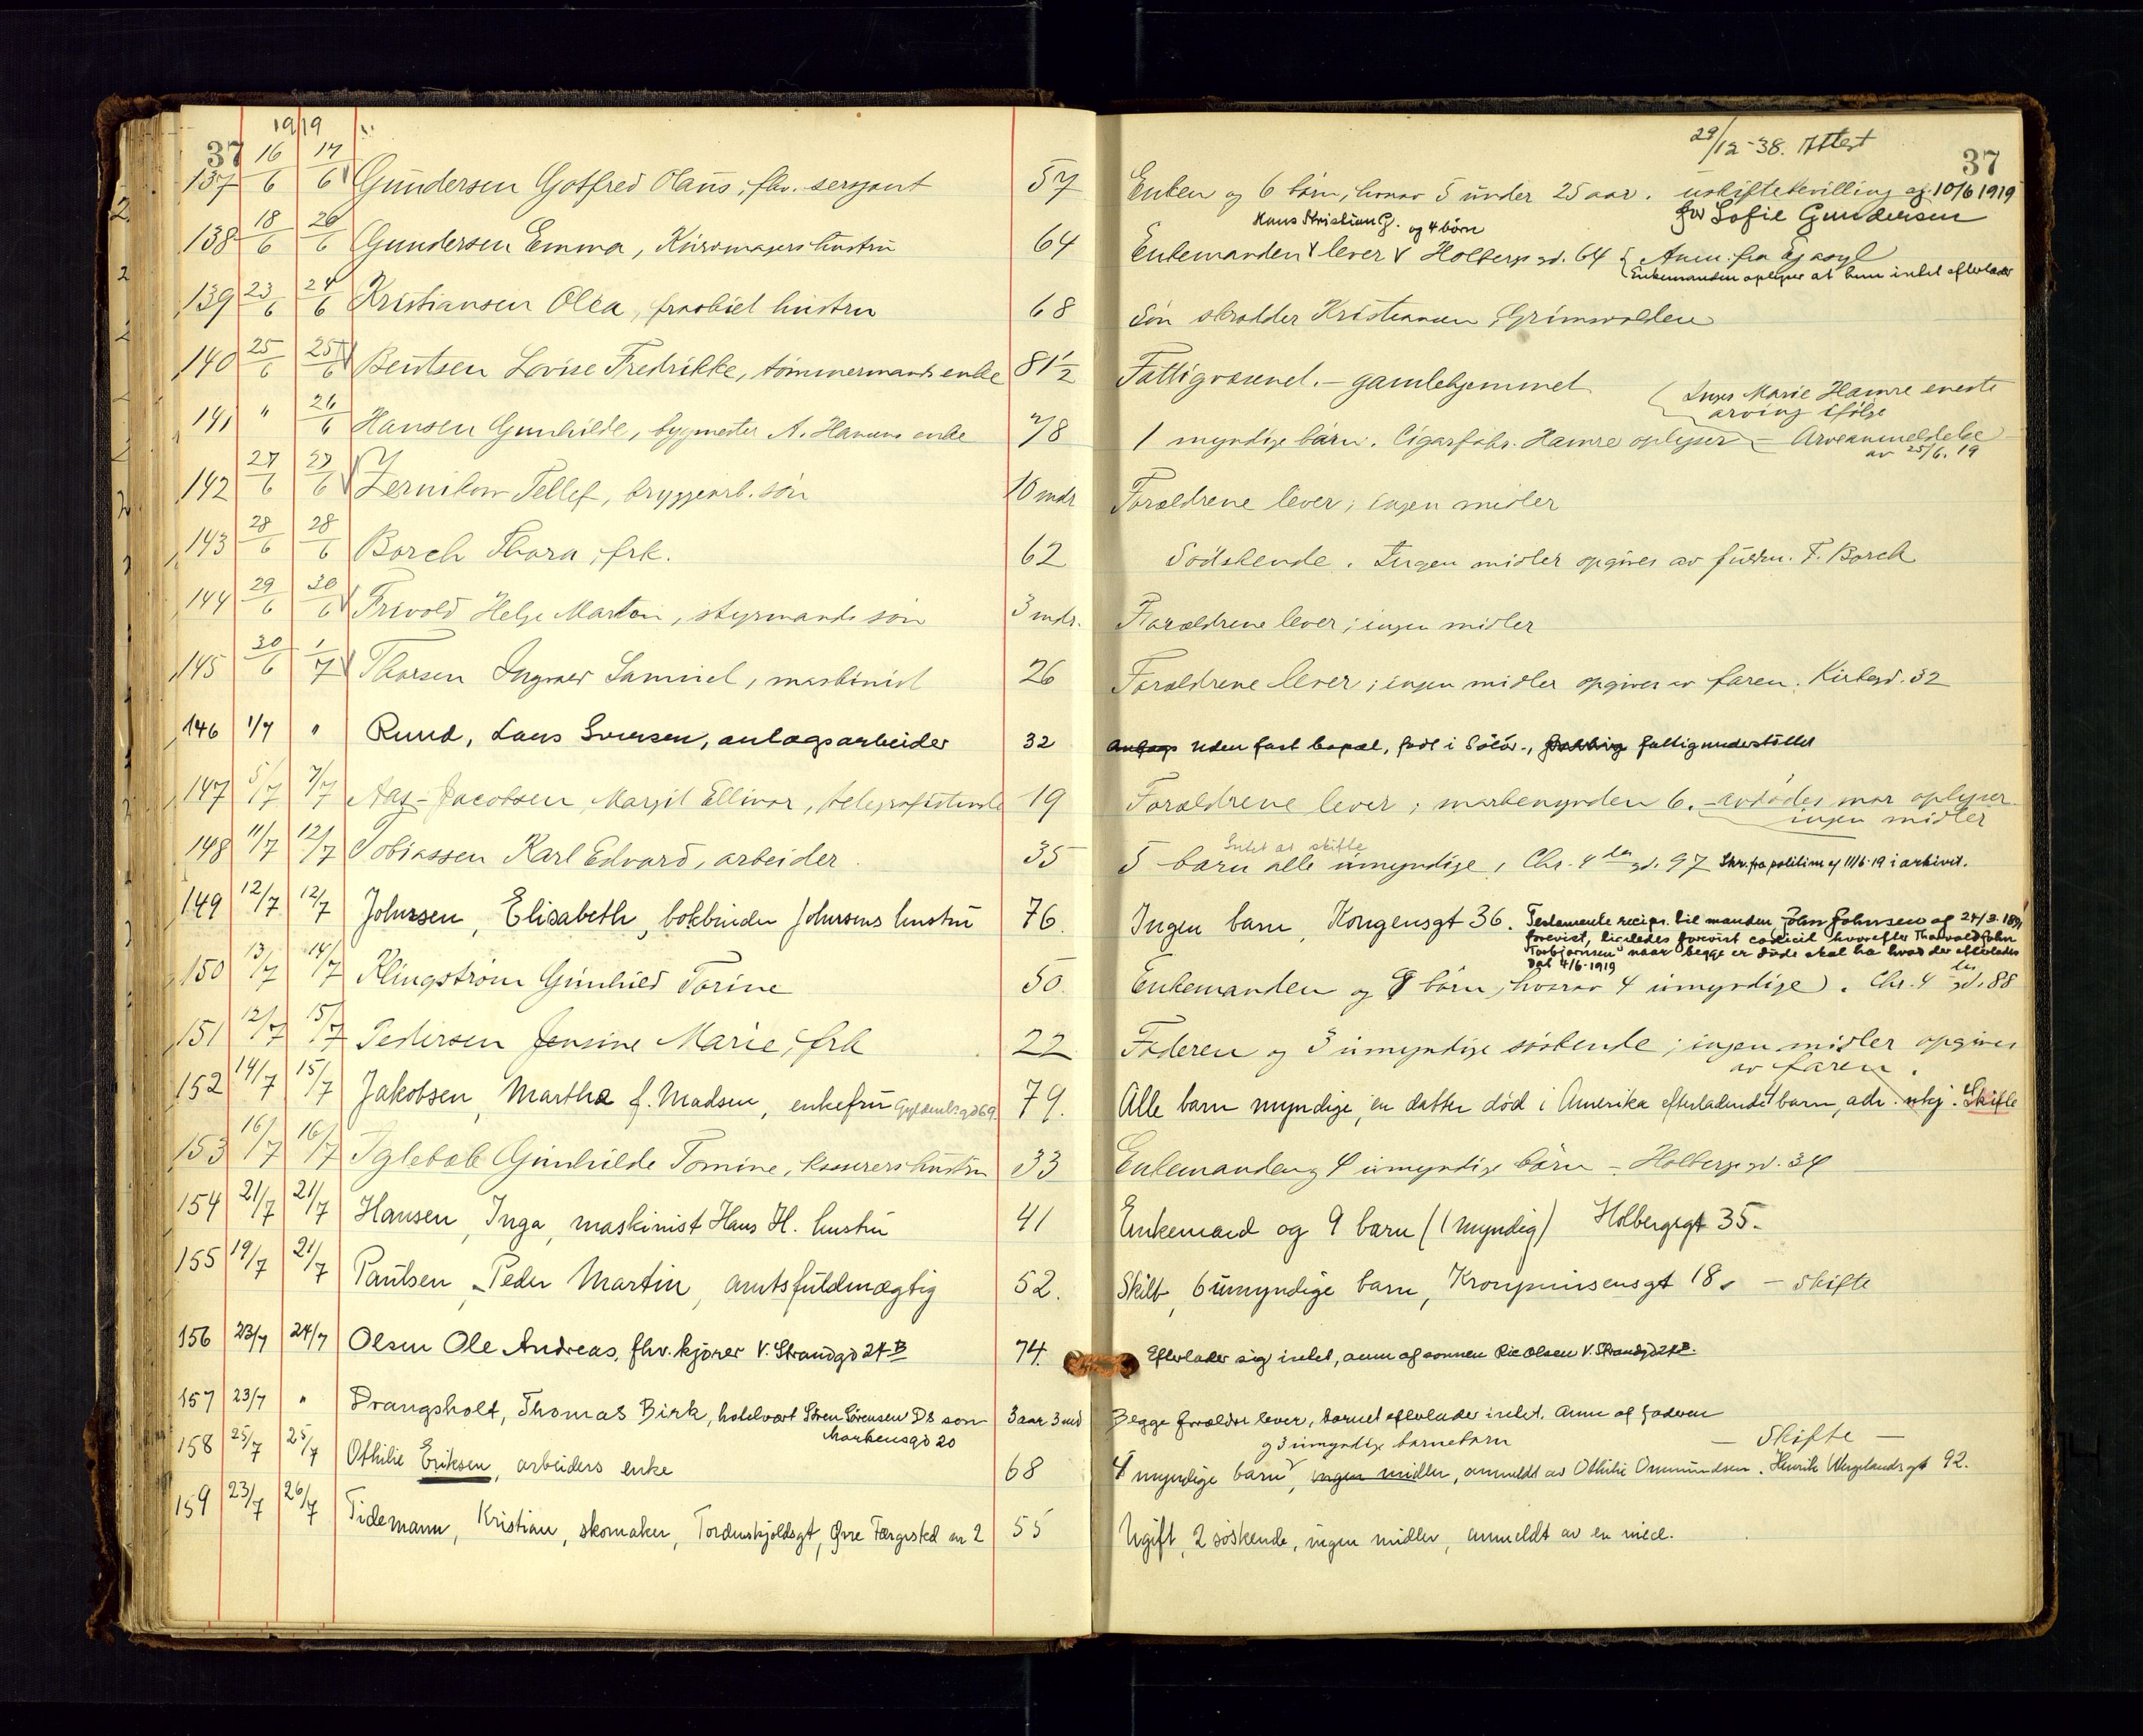 1919
37
137 16/6 17/6 Gundersen Gotfred Olaus, fhv. sersjant 57
138 18/6 20/6 Gundersen Emma, hustru 64
139 23/6 24/6 Kristiansen Olea, fraskilt hustru 68
140 25/6 25/6 Bentsen Lovise Fredrikke, tømmermands enke 81 1/2
141 " 26/6 Hansen Gunhilde, bygmester A. Hansens enke 78
142 27/6 27/6 Zernikow Tellef, bryggearb. søn 10 mdr
143 28/6 28/6 Borch Thora, frk. 62
144 29/6 30/6 Trivold Helge Martin, styrmands søn 3 mdr.
145 30/6 1/7 Thorsen Ingvald Samuel, maskinist 26
146 1/7 " Ruud, Lars Iversen, anlægsarbeider 32
147 5/7 7/7 Aas-Jacobsen Margit Ellinor, telegrafistinde 19
148 11/7 12/7 Tobiassen Karl Edvard, arbeider 35
149 12/7 12/7 Johnsen, Elisabeth, bokbinder Johnsens hustru 76
150 13/7 14/7 Klingstrøm Gunhild Torine 50
151 12/7 15/7 Pedersen Jensine Marie, frk 22
152 14/7 15/7 Jakobsen, Martha f. Madsen, enkefru Gyldenl.gd 69. 79.
153 16/7 16/7 Iglebæk Gunhilde Tomine, kasserers hustru 33
154 21/7 21/7 Hansen, Inga, maskinist Hans H. hustru 41
155 19/7 21/7 Paulsen, Peder Martin, amtsfuldmægtig 52.
156 23/7 24/7 Olsen Ole Andreas, fhv. kjører V. Strandgd 24B 74.
157 23/7 " Drangsholt, Thomas Birk, hotelvært Søren Sørensen Ds søn 3 aar 3 md
Markensgd 20
158 25/7 25/7 Othilie Eriksen, arbeiders enke 68
159 23/7 26/7 Tidemann, Kristian, skomaker, Tordenskjoldsgt, Øvre Færgested nr 2 55
29/12-38. Attest
37
Enken og 6 børn, hvorav 5 under 25 aar. uskiftebevilling af 10/6 1919
for Sofie Gundersen
Hans Kristian G. og 4 børn
Enkemanden lever Holbergsgd. 64 Anm. fra
Enkemanden oplyser at hun intet efterlader
Søn skrædder Kristiansen, Grimsvolden
Fattigvæsenet. – gamlehjemmet
Inger Marie Hamre eneste
arving ifølge
1 myndige børn. Cigarfabr. Hamre oplyser – Arveanmeldelse
av 25/6. 19
Forældrene lever; ingen midler
Sødskende. Ingen midler opgives av T. Borch
Forældrene lever; ingen midler
Forældrene lever; ingen midler opgives av faren. Kirkegd. 32
Anlægs uden fast bopæl, født i Solør., fattigunderstøttet
Forældrene lever; 6. – avdødes mor oplyser
ingen midler
Intet at skifte
5 barn alle umyndige, Chr. 4 des gd. 97 Skr. fra politiet af 11/6-19 i arkivet.
Ingen barn, Kongensgt 36. Testamente recipr. til manden John Johnsen af 24/3-1891
forevist, ligeledes forevist codicil hvorefter Thorvald John
Torbjørnsen naar begge er døde skal ha hvad der efterlades
dat 4/6-1919
Enkemanden og 8 børn, hvorav 4 umyndige. Chr. 4 des gd. 88
Faderen og 3 umyndige søskende; ingen midler opgives
av faren.
Alle barn myndige, en datter død i Amerika efterladende 4 barn, adr. ukj. Skifte
Enkemanden og 4 umyndige børn – Holbergsgd. 34
Enkemand og 9 barn (1 myndig) Holbergsgt 35.
Skilt, 6 umyndige barn, Kronprinsensgt 18. – skifte
Efterlader sig intet, anm af sønnen Olsen V. Strandgd 24B.
Begge forældre lever, barnet efterlader intet. Anm af faderen
og 3 umyndige barnebarn – Skifte –
4 myndige barn, ingen midler, anmeldt av Othilie Ommundsen. Henrik Wergelandsgt 92.
Ugift, 2 søskende, ingen midler, anmeldt av en niece.